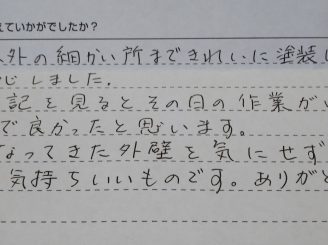 えていかがでしたか？
外の細かい所まできれいに塗装し
じしました。
記を見るとその日の作業がい
で良かったと思います。
なってきた外壁を気にせず
気持ちいいものです。ありがと